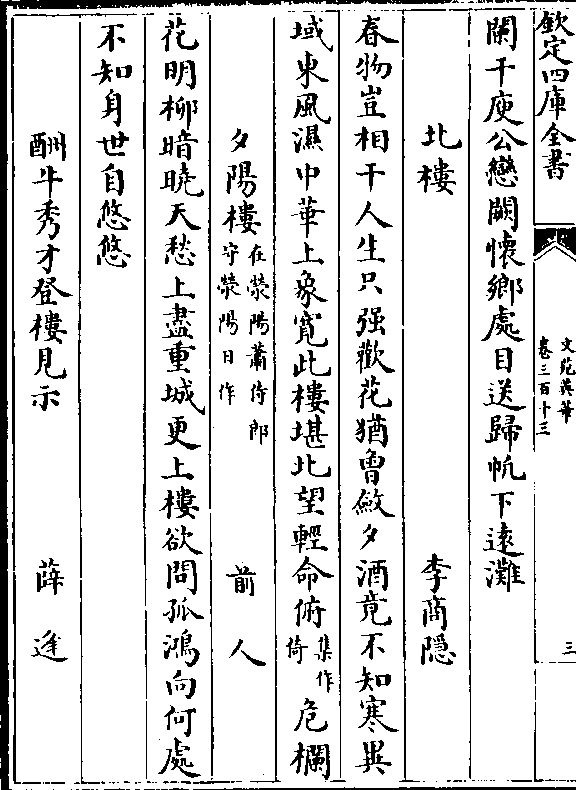 欽定四庫全書
文苑英華
卷三百十三
三
闌干庾公戀闕懷鄉處目送歸帆下遠灘
北樓 李商隱
春物豈相干人生只强歡花猶曾斂夕酒竟不知寒異
域東風濕中華上象寛此樓堪北望輕命俯集作倚危欄
夕陽樓在滎陽蕭侍郎守滎陽日作 前人
花明柳暗曉天愁上盡重城更上樓欲問孤鴻向何處
不知身世自悠悠
酬牛秀才登樓見示 薛逢